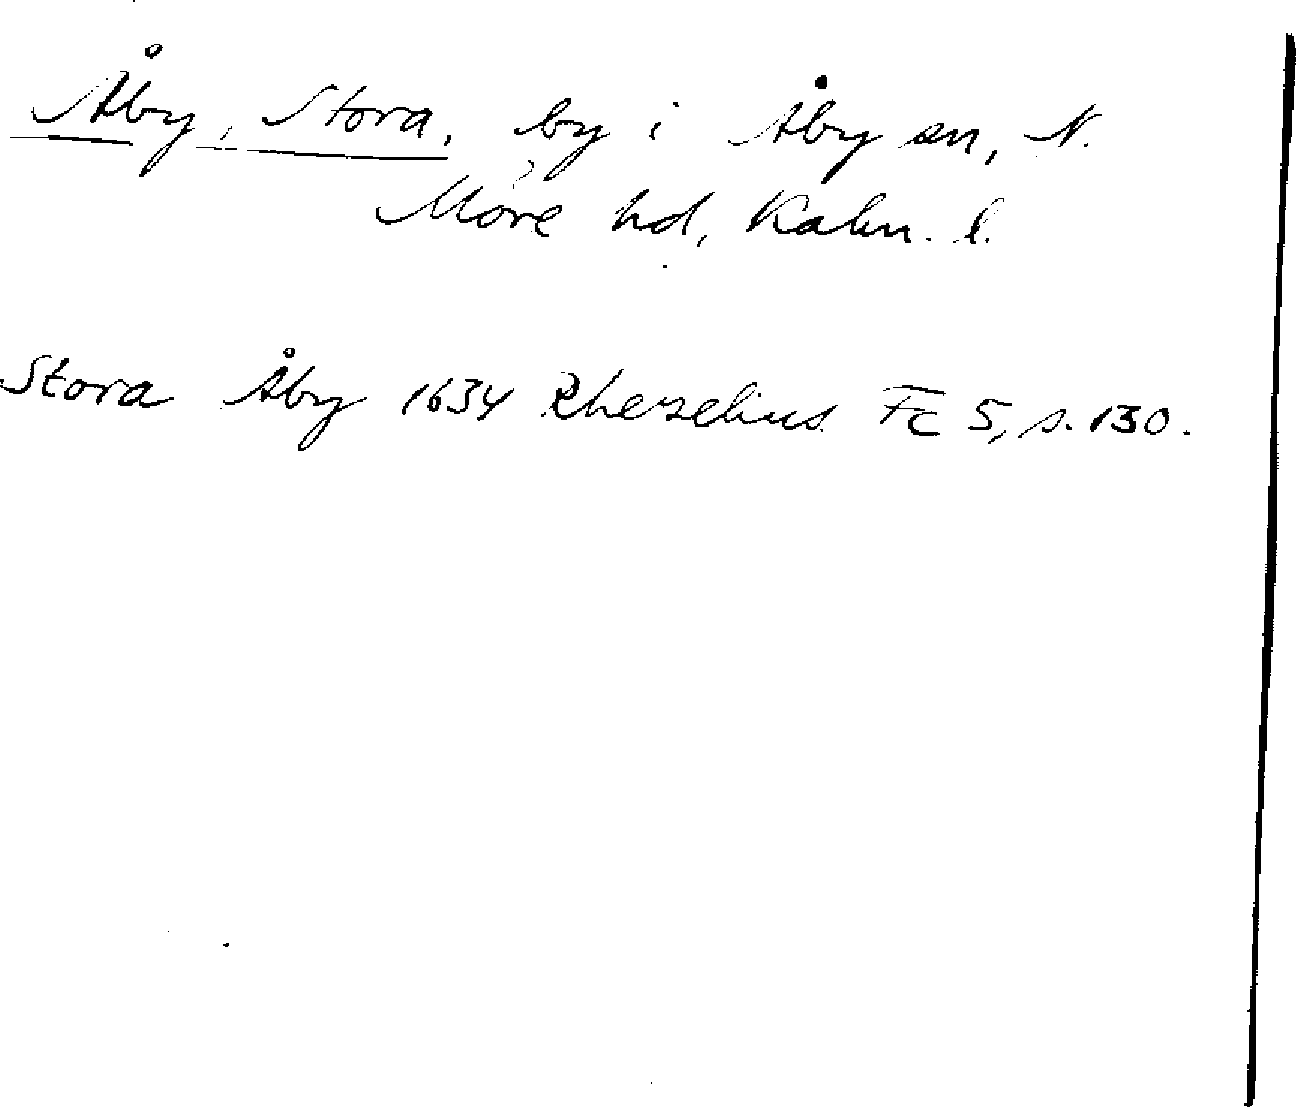 Åby, Stora, by i Åby sn, N.
Möre hd, Kalm. l.
Stora Åby 1634 Rhezelius Fc 5, s. 130.